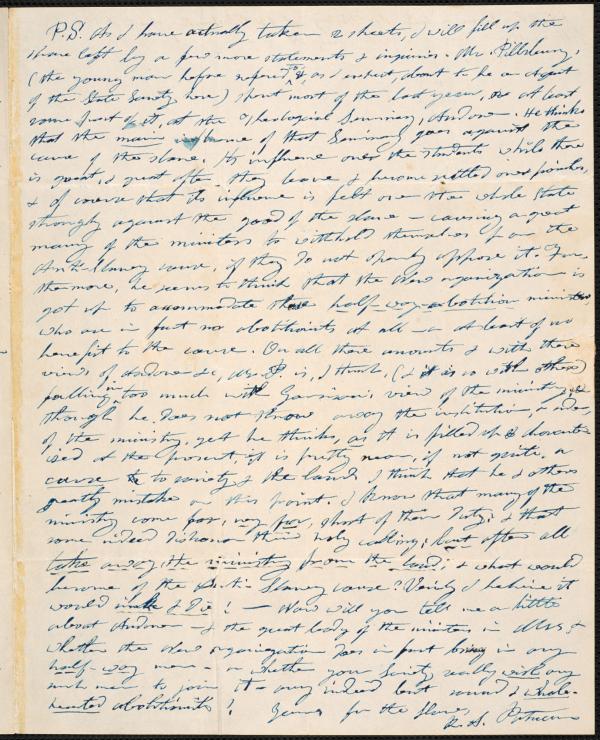 P.S. As I have actually taken 2 sheets, I will fill up the
space left by a few more statements & inquiries. Mr. Pillsbury,
(the young man before refered to, & as I expect about to be an Agent
of the State Society here) spent most of the last year, or at least
some part of it, at the Theological Seminary, Andover. He thinks
that the main influence of that Seminary goes against the
cause of the slave. Its influence over the students while there
is great & great after they leave & become settled over parishes,
& of course that its influence is felt over the whole State
strongly against the good of the slave — causing a great
many of the ministers to withhold themselves from the
Anti-Slavery cause, if they do not openly oppose it. Fur-
thermore, he seems to think that the New organization is
got up to accommodate these half-way-abolition ministers
who are in fact no abolitionists at all — or at least of no
benefit to the cause. On all these accounts & with these
views of Andover &c, Mr. P. is, I think, (& it is so with others)
falling in too much with Garrison's view of the ministry, &
though he does not throw away the institution, or order,
of the ministry, yet he thinks, as it is filled up & character-
ized at the present, it is pretty near, if not quite, a
curse to society & the land. I think that he & others
greatly mistake on this point. I know that many of the
ministry come far, very far, short of their duty; & that
some indeed dishonor their holy calling; but after all
take away the ministry from the land, & what would
become of the Anti-Slavery cause? Verily I believe it
would sink & die! — Now will you tell me a little
about Andover — & the great body of the ministers in Mass. &
whether the New organization does in fact bring in any
half-way men — or whether your Society really wish any
such men to join it — any indeed but sound & whole-
hearted abolitionists?
Yours for the slave,